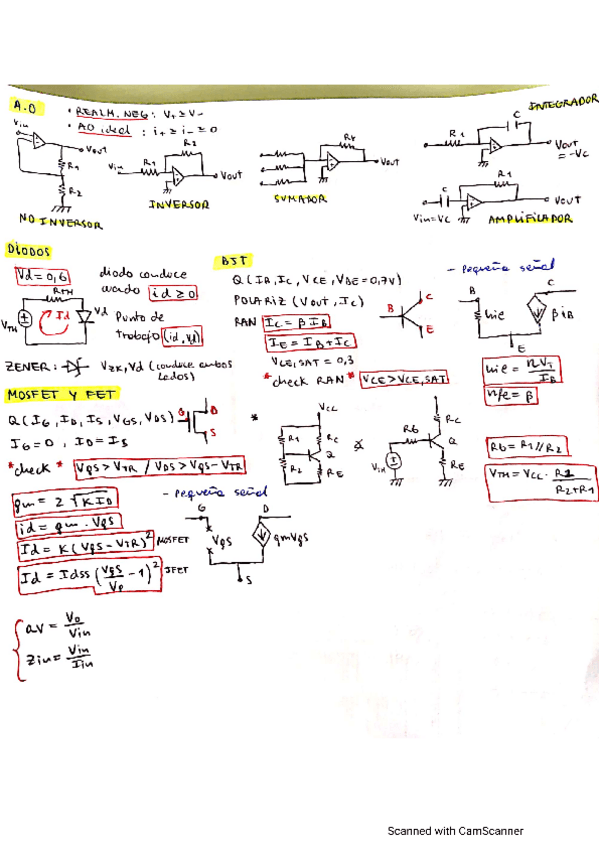 A.O
• REALM. NEG: V+ ≥ V-
• AO ideal: i+ ≥ i- ≥ 0
Vin
Vout
R1
R2
NO INVERSOR
Vin
R1
R2
Vout
INVERSOR
Rf
Vout
SUMADOR
INTEGRADOR
C
R1
Vout
= -Vc
R1
C
Vout
Vin=Vc
AMPLIFICADOR
DIODOS
Vd = 0,6
diodo conduce
cuando id ≥ 0
RTH
VTH
Id
Vd
Punto de
trabajo (id, Vd)
ZENER:
VZK, Vd (conduce ambos
lados)
BJT
Q (IB, IC, VCE, VBE = 0,7V)
POLARIZ (Vout, Ic)
RAN IC = β IB
IE = IB + IC
VCE,SAT = 0,3
*check RAN* VCE > VCE,SAT
B
C
E
- Pequeña señal
B
C
hie
β iB
E
hie = nVT/IB
hfe = β
MOSFET Y FET
Q (IG, ID, IS, VGS, VDS)
G
D
S
IG = 0, ID = IS
*check* VGS > VTR / VDS > VGS - VTR
*
VCC
R1
RC
R2
Q
RE
RC
RG
Q
Vin
RE
RG = R1//R2
VTH = VCC · R2/(R2+R1)
gm = 2 √K ID
id = gm · Vgs
Id = K (VGS - VTR)² MOSFET
Id = Idss (VGS/Vp - 1)² JFET
- Pequeña señal
G
D
Vgs
gmVgs
S
av = Vo/Vin
Zin = Vin/Iin
Scanned with CamScanner